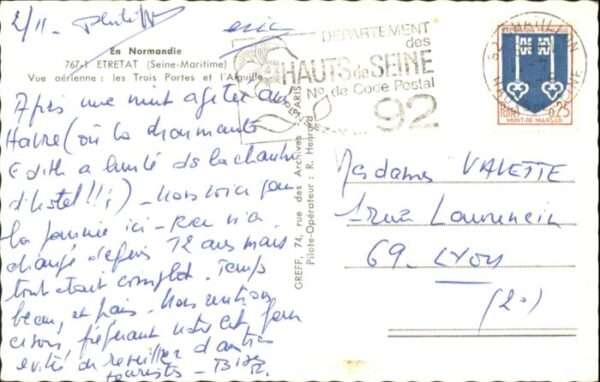 2/11.
eric
En Normandie
767-1 ETRETAT (Seine-Maritime)
Vue aérienne : les Trois Portes et l'Aiguille
Après une nuit agitée au
Havre (où la charmante
Edith a hurlé de la chambre
d'hotel!!;) - nous voici pour
la journée ici - Rien n'a
changé depuis 12 ans mais
tout était complet. Temps
beau, et frais. Nous rentrons
ce soir, préférant notre lit, pour
éviter de réveiller d'autres
touristes - Bises
GREFF, 74, rue des Archives - PARIS
Pilote-Opérateur : R. Henrard
DEPARTEMENT
des
HAUTS de SEINE
No de Code Postal
92
0,25
MONT-DE-MARSAN
Madame VALETTE
1 rue Laurencin
69. LYON
(2e)